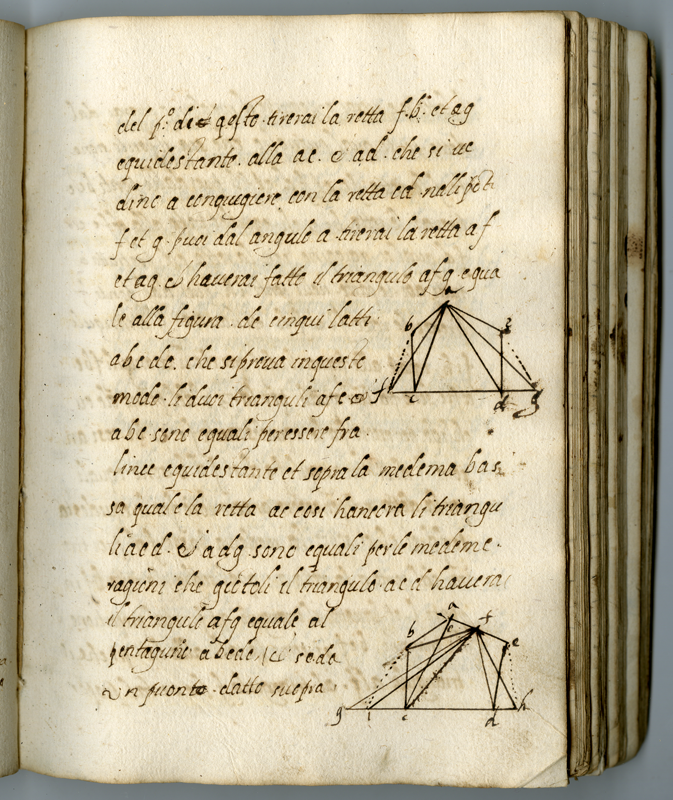 del p.º di qesto tirerai la retta f.b. et eg
equidestante. alla ac. & ad. che si ue
dino a congugiere con la retta cd nelli poti
f et g. puoi dal angulo a tirerai la retta af
et ag. & haverai fatto il triangulo afg equa
le alla figura. de cinqui latti
abcde. che si prova in questo
modo. li duoi trianguli afc &
abc sono equali per essere fra
linee equidestante et sopra la medema bas
sa quale la retta ac cosi hancora li triangu
li aed. & adg sono equali per le medeme
ragioni che gietoli il triangulo. acd haverai
il triangulo afg equale al
pentaguno abcde. & se da
un puonto. datto suopra
a
b
e
f
c
d
g
a
b
f
e
g
i
c
d
h